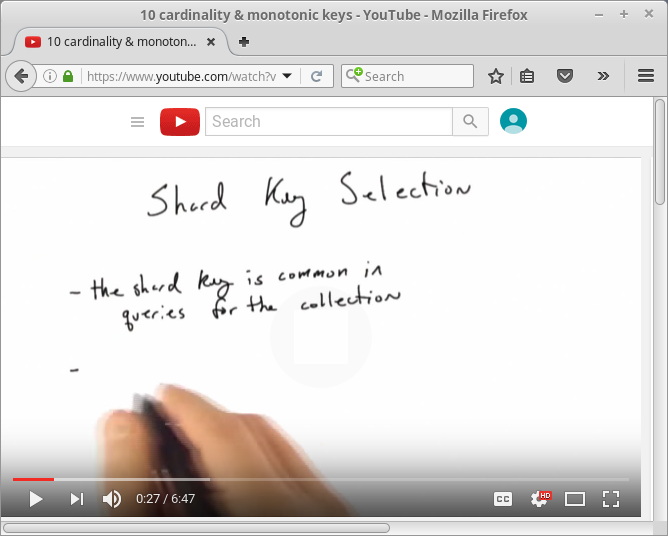 10 cardinality & monotonic keys - YouTube - Mozilla Firefox
10 cardinality & monoton...
https://www.youtube.com/watch?v
Search
Search
Shard Key Selection
- the shard key is common in
queries for the collection
-
0:27 / 6:47
CC
HD